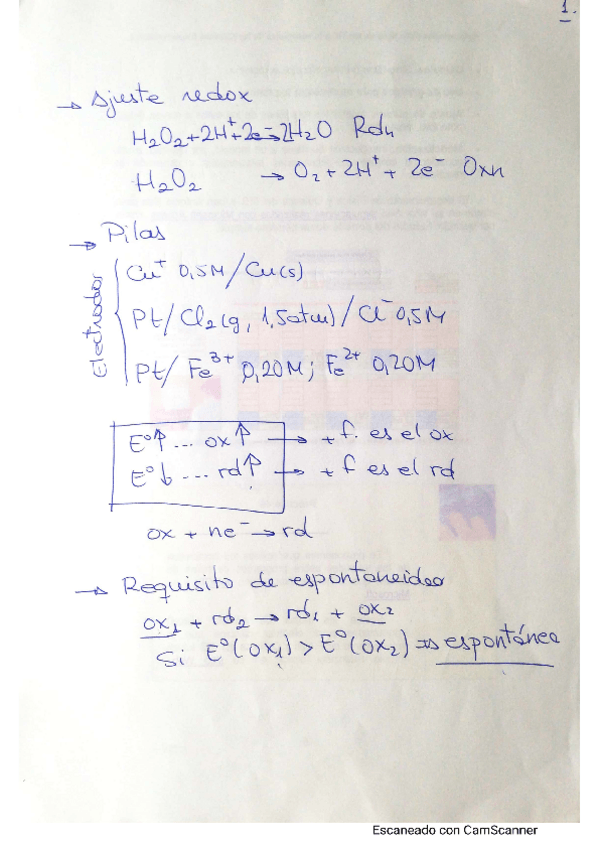 1.
→ Ajuste redox
H₂O₂+2H⁺+2e⁻→2H₂O Rdn
H₂O₂ → O₂ + 2H⁺ + 2e⁻ Oxn
→ Pilas
Electrodos
Cu⁺ 0,5M/Cu(s)
Pt/Cl₂(g, 1,5atm)/Cl⁻ 0,5M
Pt/ Fe³⁺ 0,20M; Fe²⁺ 0,20M
E⁰↑ ... ox↑ → + f. es el ox
E⁰↓ ... rd↑ → + f es el rd
ox + ne⁻ → rd
→ Requisito de espontaneidad
ox₁ + rd₂ → rd₁ + ox₂
Si E⁰(ox₁) > E⁰(ox₂) ⇒ espontánea
Escaneado con CamScanner